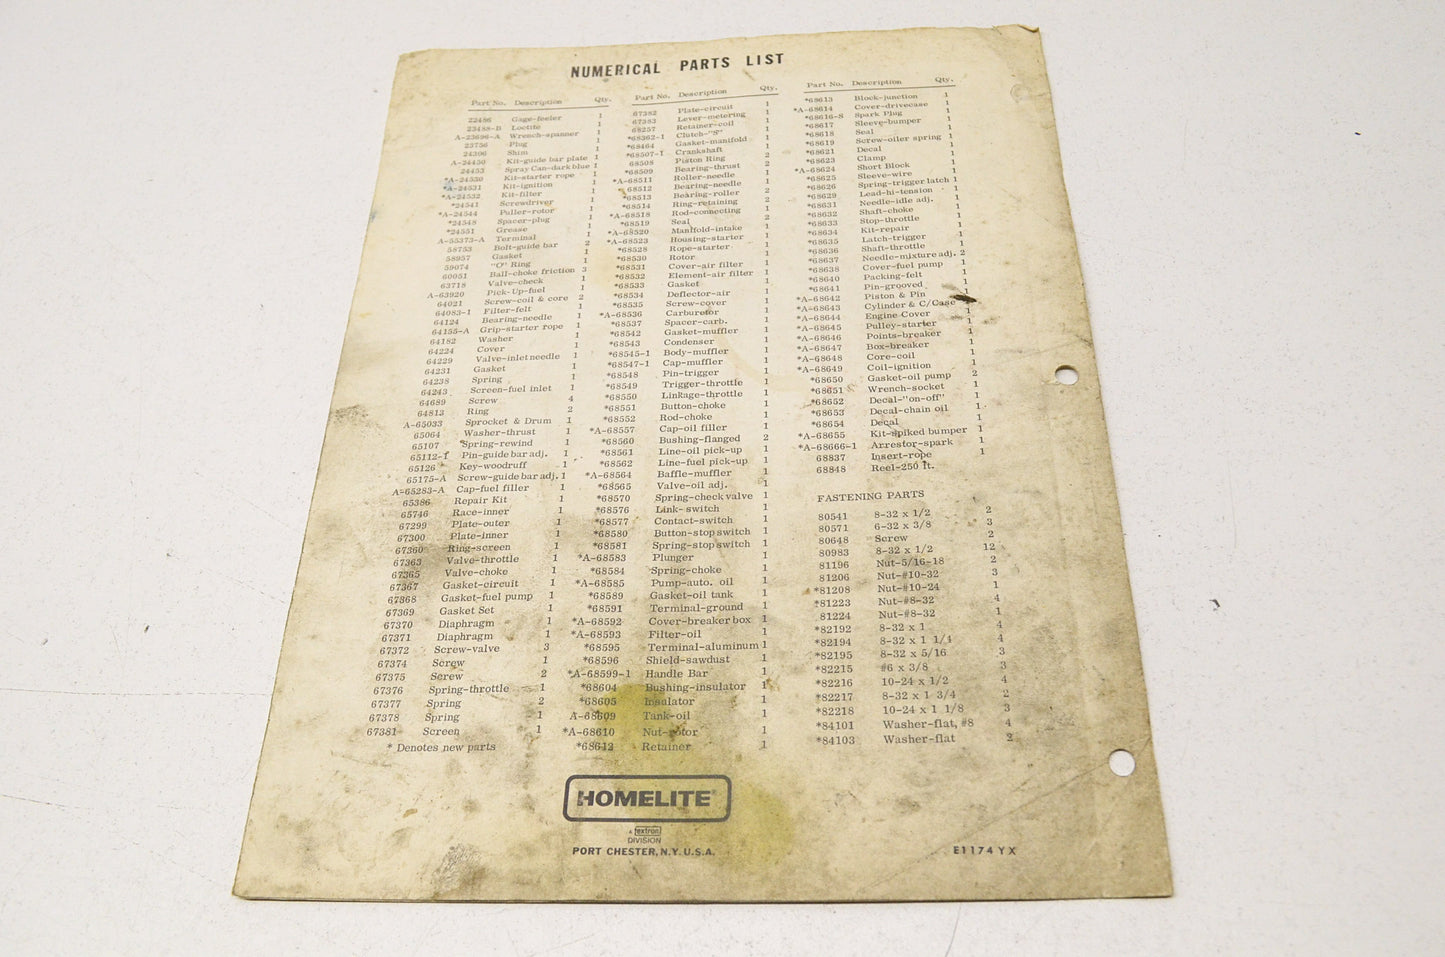 NUMERICAL PARTS LIST
Part No. Description Qty.
22486 Gage-feeler 1
23488-B Loctite 1
A-23696-A Wrench-spanner 1
23756 Plug 1
24306 Shim 1
A-24430 Kit-guide bar plate 1
24453 Spray Can-dark blue 1
*A-24530 Kit-starter rope 1
*A-24531 Kit-ignition 1
*A-24532 Kit-filter 1
*24541 Screwdriver 1
*A-24544 Puller-rotor 1
*24548 Spacer-plug 1
*24551 Grease 1
A-55373-A Terminal 1
58753 Bolt-guide bar 2
58957 Gasket 1
59074 "O" Ring 1
60051 Ball-choke friction 3
63718 Valve-check 1
A-63920 Pick-Up-fuel 1
64021 Screw-coil & core 2
64083-1 Filter-felt 1
64124 Bearing-needle 1
64155-A Grip-starter rope 1
64182 Washer 1
64224 Cover 1
64229 Valve-inlet needle 1
64231 Gasket 1
64238 Spring 1
64243 Screen-fuel inlet 1
64689 Screw 4
64813 Ring 2
A-65033 Sprocket & Drum 1
65064 Washer-thrust 1
65107 Spring-rewind 1
65112-1 Pin-guide bar adj. 1
65126 Key-woodruff 1
65175-A Screw-guide bar adj. 1
A-65283-A Cap-fuel filler 1
65386 Repair Kit 1
65746 Race-inner 1
67299 Plate-outer 1
67300 Plate-inner 1
67360 Ring-screen 1
67363 Valve-throttle 1
67365 Valve-choke 1
67367 Gasket-circuit 1
67368 Gasket-fuel pump 1
67369 Gasket Set 1
67370 Diaphragm 1
67371 Diaphragm 1
67372 Screw-valve 3
67374 Screw 1
67375 Screw 2
67376 Spring-throttle 1
67377 Spring 2
67378 Spring 1
67381 Screen 1
* Denotes new parts
Part No. Description Qty.
67382 Plate-circuit 1
67383 Lever-metering 1
68257 Retainer-coil 1
*68362-1 Clutch-"S" 1
*68464 Gasket-manifold 1
*68507-1 Crankshaft 1
68508 Piston Ring 2
*68509 Bearing-thrust 2
*A-68511 Roller-needle 1
*68512 Bearing-needle 1
*68513 Bearing-roller 2
*68514 Ring-retaining 2
*A-68518 Rod-connecting 1
*68519 Seal 2
*A-68520 Manifold-intake 1
*A-68523 Housing-starter 1
*68528 Rope-starter 1
*68530 Rotor 1
*68531 Cover-air filter 1
*68532 Element-air filter 1
*68533 Gasket 1
*68534 Deflector-air 1
*68535 Screw-cover 1
*A-68536 Carburetor 1
*68537 Spacer-carb. 1
*68542 Gasket-muffler 1
*68543 Condenser 1
*68545-1 Body-muffler 1
*68547-1 Cap-muffler 1
*68548 Pin-trigger 1
*68549 Trigger-throttle 1
*68550 Linkage-throttle 1
*68551 Button-choke 1
*68552 Rod-choke 1
*A-68557 Cap-oil filler 1
*68560 Bushing-flanged 2
*68561 Line-oil pick-up 1
*68562 Line-fuel pick-up 1
*A-68564 Baffle-muffler 1
*68565 Valve-oil adj. 1
*68570 Spring-check valve 1
*68576 Link-switch 1
*68577 Contact-switch 1
*68580 Button-stop switch 1
*68581 Spring-stop switch 1
*A-68583 Plunger 1
*68584 Spring-choke 1
*A-68585 Pump-auto. oil 1
*68589 Gasket-oil tank 1
*68591 Terminal-ground 1
*A-68592 Cover-breaker box 1
*A-68593 Filter-oil 1
*68595 Terminal-aluminum 1
*68596 Shield-sawdust 1
*A-68599-1 Handle Bar 1
*68604 Bushing-insulator 1
*68605 Insulator 1
A-68609 Tank-oil 1
*A-68610 Nut-rotor 1
*68612 Retainer 1
Part No. Description Qty.
*68613 Block-junction 1
*A-68614 Cover-drivecase 1
*68616-S Spark Plug 1
*68617 Sleeve-bumper 1
*68618 Seal 1
*68619 Screw-oiler spring 1
*68621 Decal 1
*68623 Clamp 1
*A-68624 Short Block 1
*68625 Sleeve-wire 1
*68626 Spring-trigger latch 1
*68629 Lead-hi-tension 1
*68631 Needle-idle adj. 1
*68632 Shaft-choke 1
*68633 Stop-throttle 1
*68634 Kit-repair 1
*68635 Latch-trigger 1
*68636 Shaft-throttle 1
*68637 Needle-mixture adj. 2
*68638 Cover-fuel pump 1
*68640 Packing-felt 1
*68641 Pin-grooved 1
*A-68642 Piston & Pin 1
*A-68643 Cylinder & C/Case
*A-68644 Engine Cover 1
*A-68645 Pulley-starter 1
*A-68646 Points-breaker 1
*A-68647 Box-breaker 1
*A-68648 Core-coil 1
*A-68649 Coil-ignition 1
*68650 Gasket-oil pump 2
*68651 Wrench-socket 1
*68652 Decal-"on-off" 1
*68653 Decal-chain oil 1
*68654 Decal 1
*A-68655 Kit-spiked bumper 1
*A-68666-1 Arrestor-spark 1
68837 Insert-rope 1
68848 Reel-250 ft.
FASTENING PARTS
80541 8-32 x 1/2 2
80571 6-32 x 3/8 3
80648 Screw 2
80983 8-32 x 1/2 12
81196 Nut-5/16-18 2
81206 Nut-#10-32 3
*81208 Nut-#10-24 1
*81223 Nut-#8-32 4
81224 Nut-#8-32 1
*82192 8-32 x 1 4
*82194 8-32 x 1 1/4 4
*82195 8-32 x 5/16 3
*82215 #6 x 3/8 3
*82216 10-24 x 1/2 4
*82217 8-32 x 1 3/4 2
*82218 10-24 x 1 1/8 3
*84101 Washer-flat, #8 4
*84103 Washer-flat 2
HOMELITE
A textron
DIVISION
PORT CHESTER, N.Y. U.S.A.
E1174YX